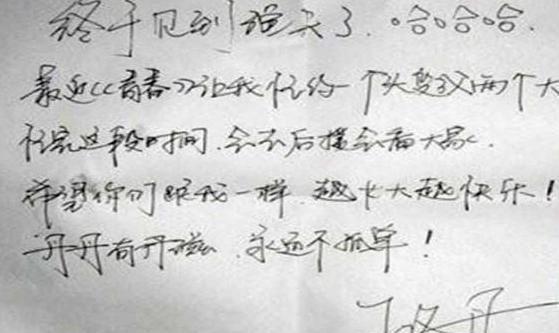 终于见到头了.哈哈哈.
最近《青春》让我忙的一个头变两个大
忙完这段时间.会去后援会看大家.
希望你们跟我一样.越长大越快乐!
丹丹有丹磁.永远不孤单!
丹